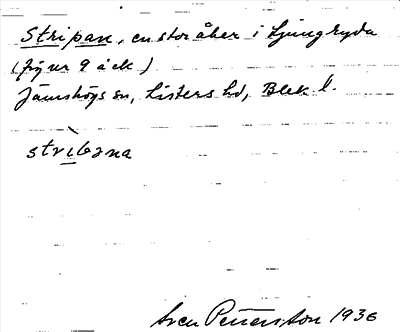 Stripan, en stor åker i Ljungryda
(fyra 9 åck)
Jämshögs sn, Listers hd, Blek l.
stribana
Sven Pettersson 1936